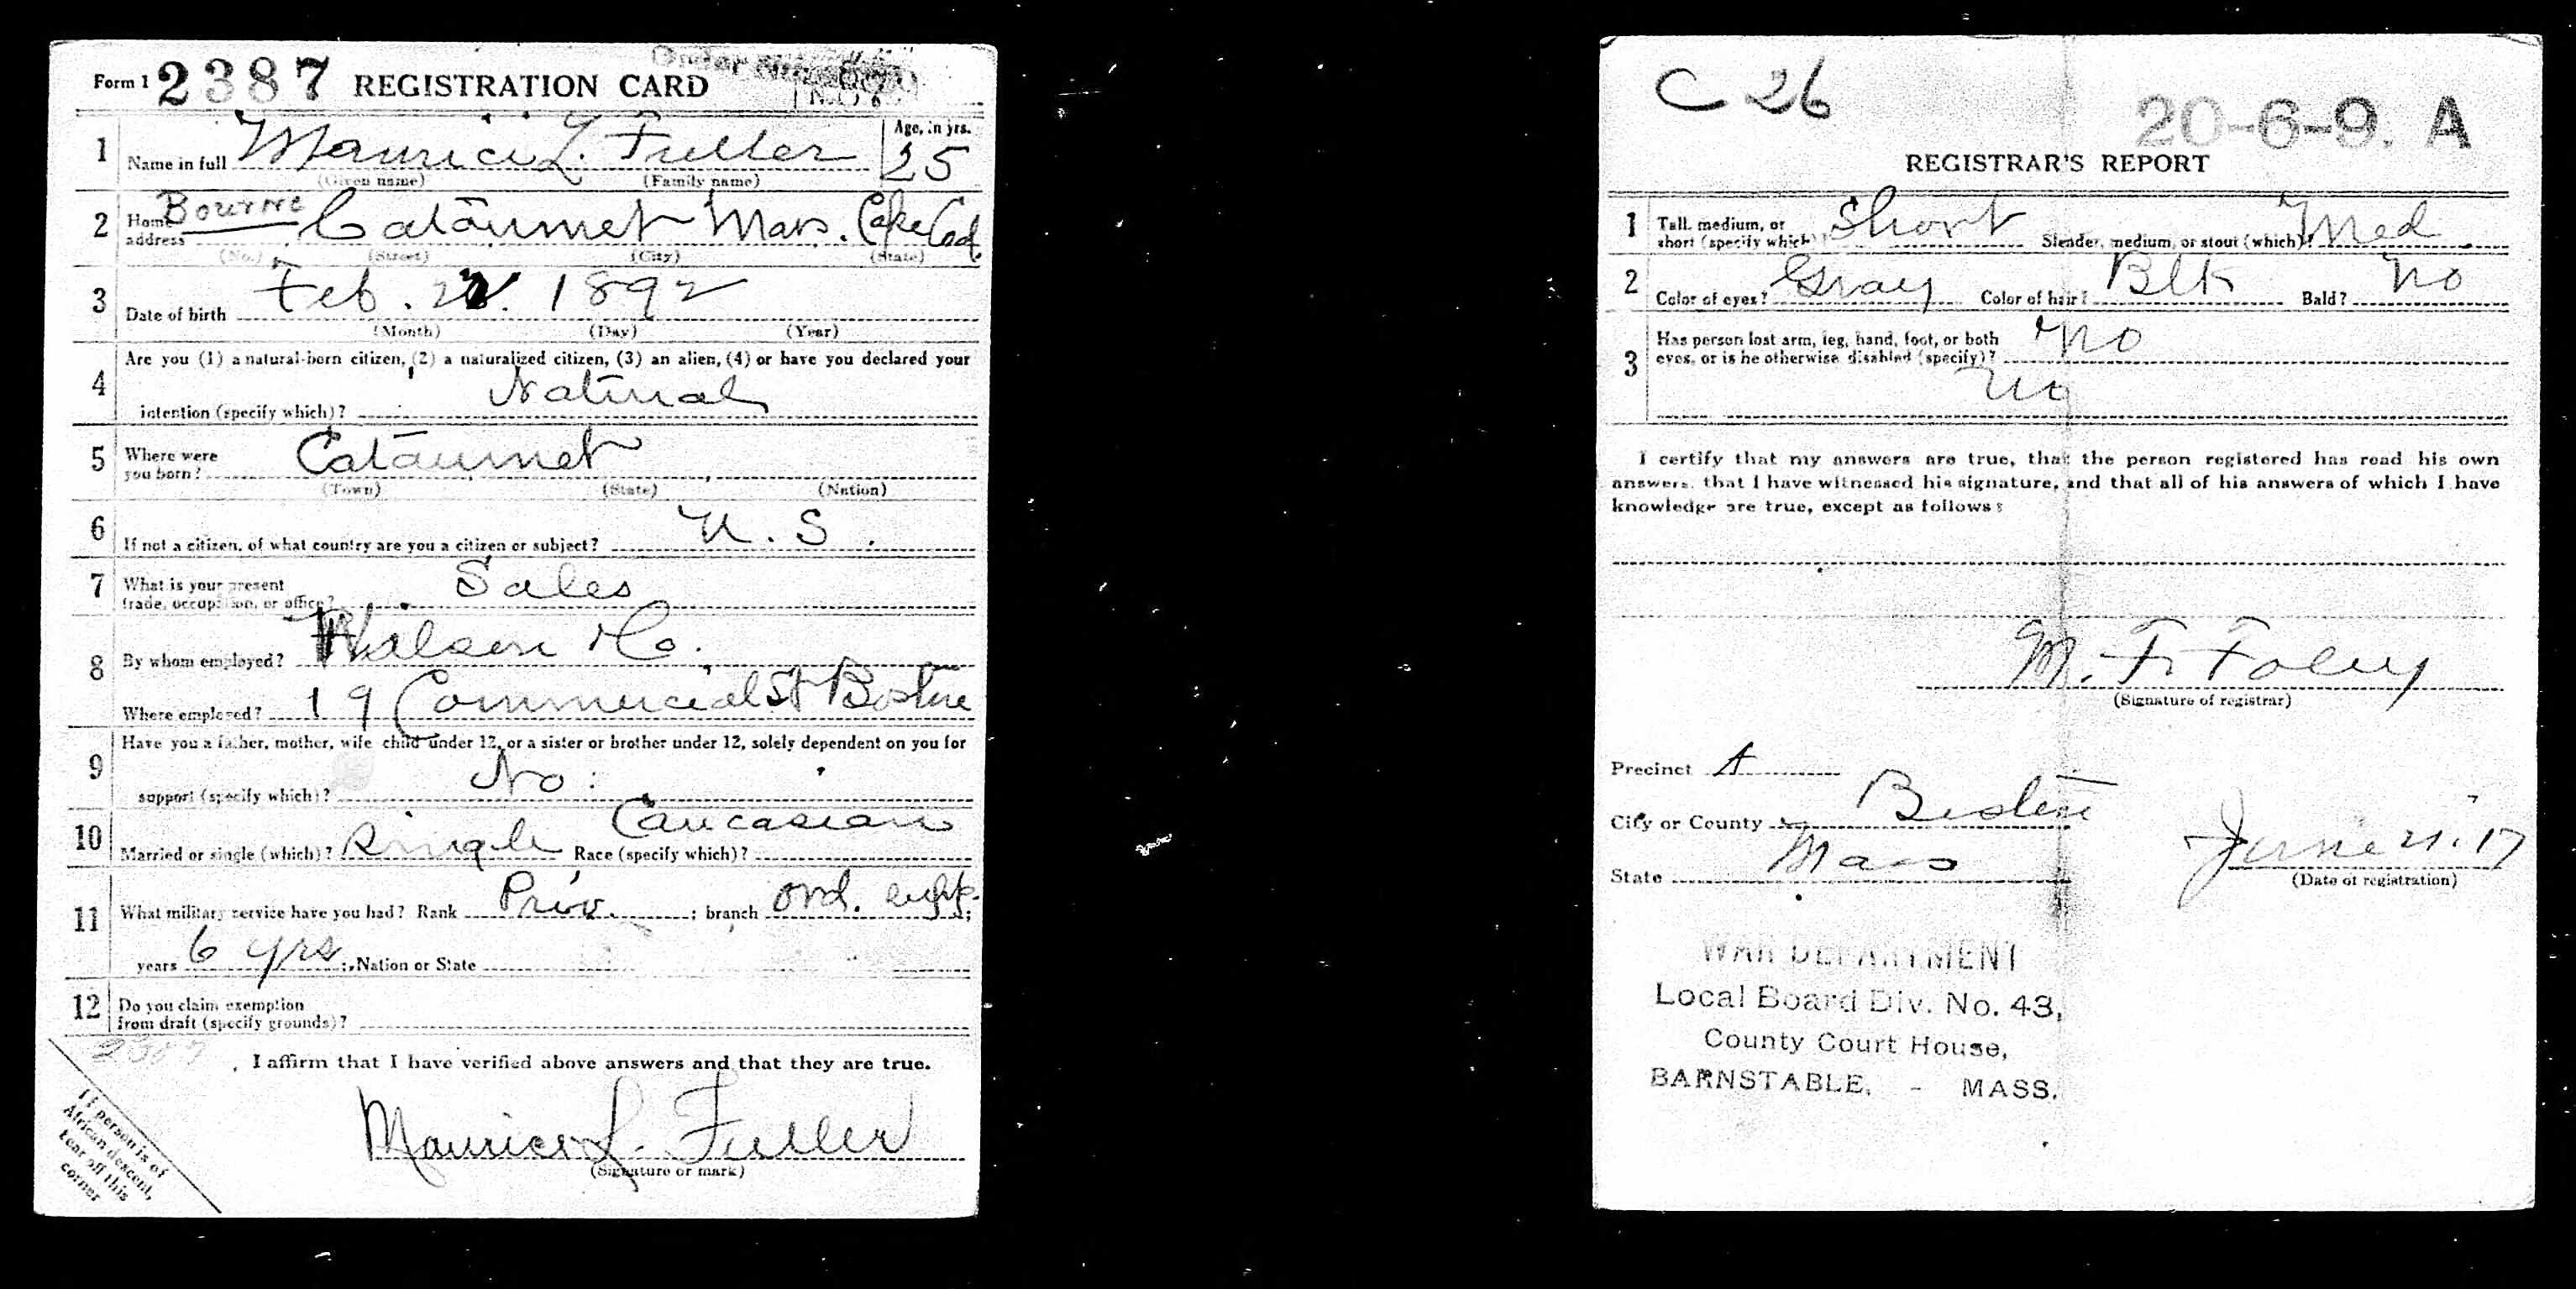 Form 1 2387 REGISTRATION CARD
1 Name in full Maurice L. Fuller Age, in yrs. 25
(Given name) (Family name)
Bourne
2 Home address Cataumet Mass. Cape Cod
(No.) (Street) (City) (State)
3 Date of birth Feb. 1892
(Month) (Day) (Year)
4 Are you (1) a natural-born citizen, (2) a naturalized citizen, (3) an alien, (4) or have you declared your
intention (specify which)? Natural
5 Where were you born? Cataumet
(Town) (State) (Nation)
6 If not a citizen, of what country are you a citizen or subject? U.S.
7 What is your present trade, occupation, or office? Sales
8 By whom employed? Co.
Where employed? 19 Commercial St Boston
9 Have you a father, mother, wife child under 12, or a sister or brother under 12, solely dependent on you for
support (specify which)? No
10 Married or single (which)? Single Race (specify which)? Caucasian
11 What military service have you had? Rank Priv. ; branch ord. ;
years 6 yrs ; Nation or State
12 Do you claim exemption
from draft (specify grounds)?
2387
I affirm that I have verified above answers and that they are true.
Maurice L. Fuller
(Signature or mark)
If person is of
African descent,
tear off this
corner
C 26
20-6-9. A
REGISTRAR'S REPORT
1 Tall, medium, or short (specify which)? Short Slender, medium, or stout (which)? Med.
2 Color of eyes? Gray Color of hair? Blk Bald? No
3 Has person lost arm, leg, hand, foot, or both
eyes, or is he otherwise disabled (specify)? No
No
I certify that my answers are true, that the person registered has read his own
answers, that I have witnessed his signature, and that all of his answers of which I have
knowledge are true, except as follows:
M. F. Foley
(Signature of registrar)
Precinct A
City or County Boston
State Mass
June 21.17
(Date of registration)
WAR DEPARTMENT
Local Board Div. No. 43,
County Court House,
BARNSTABLE, - MASS.